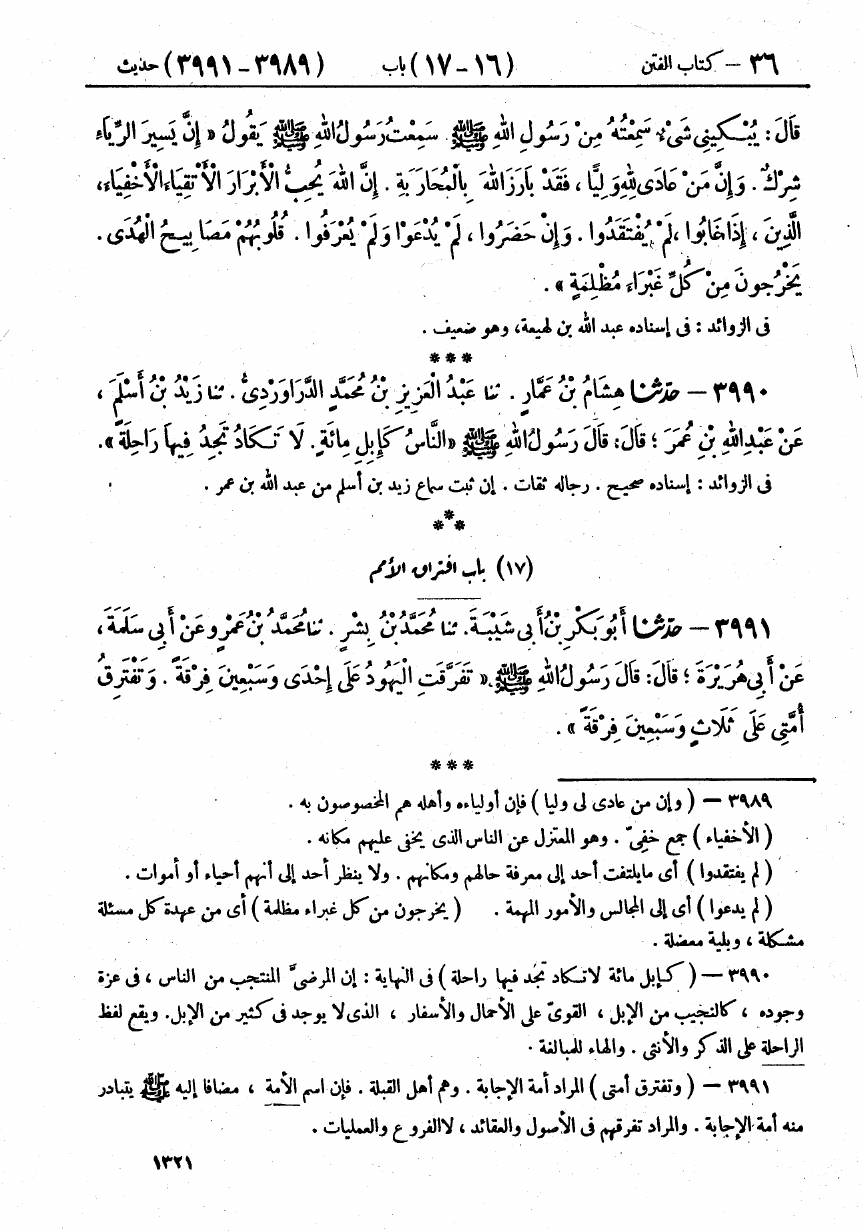 ٣٦ – كتاب الفتن (١٦–١٧) باب (٣٩٨٩–٣٩٩١) حديث
قَالَ: يُبْكِينِى شَىْءٌ سَمِعْتُهُ مِنْ رَسُولِ اللهِ ﷺ. سَمِعْتُ رَسُولَ اللهِ ﷺ يَقُولُ «إِنَّ يَسِيرَ الرِّيَاءِ
شِرْكٌ. وَإِنَّ مَنْ عَادَى لِلهِ وَلِيًّا، فَقَدْ بَارَزَ اللهَ بِالْمُحَارَبَةِ. إِنَّ اللهَ يُحِبُّ الْأَبْرَارَ الْأَتْقِيَاءَ الْأَخْفِيَاءَ،
الَّذِينَ، إِذَا غَابُوا، لَمْ يُفْتَقَدُوا. وَإِنْ حَضَرُوا، لَمْ يُدْعَوْا وَلَمْ يُعْرَفُوا. قُلُوبُهُمْ مَصَابِيحُ الْهُدَى.
يَخْرُجُونَ مِنْ كُلِّ غَبْرَاءَ مُظْلِمَةٍ».
فى الزوائد: فى إسناده عبد الله بن لهيعة، وهو ضعيف.
***
٣٩٩٠ – حدّثنا هِشَامُ بْنُ عَمَّارٍ. ثنا عَبْدُ الْعَزِيزِ بْنُ مُحَمَّدٍ الدَّرَاوَرْدِىُّ. ثنا زَيْدُ بْنُ أَسْلَمَ،
عَنْ عَبْدِ اللهِ بْنِ عُمَرَ؛ قَالَ: قَالَ رَسُولُ اللهِ ﷺ «النَّاسُ كَإِبِلِ مِائَةٍ. لَا تَكَادُ تَجِدُ فِيهَا رَاحِلَةً».
فى الزوائد: إسناده صحيح. رجاله ثقات. إن ثبت سماع زيد بن أسلم من عبد الله بن عمر.
***
(١٧) باب افتراق الأمم
٣٩٩١ – حدّثنا أَبُو بَكْرِ بْنُ أَبِى شَيْبَةَ. ثنا مُحَمَّدُ بْنُ بِشْرٍ. ثنا مُحَمَّدُ بْنُ عَمْرٍو عَنْ أَبِى سَلَمَةَ،
عَنْ أَبِى هُرَيْرَةَ؛ قَالَ: قَالَ رَسُولُ اللهِ ﷺ «تَفَرَّقَتِ الْيَهُودُ عَلَى إِحْدَى وَسَبْعِينَ فِرْقَةً. وَتَفْتَرِقُ
أُمَّتِى عَلَى ثَلَاثٍ وَسَبْعِينَ فِرْقَةً».
***
٣٩٨٩ – (وإن من عادى لى وليا) فإن أولياءه وأهله هم المخصوصون به.
(الأخفياء) جمع خفىّ. وهو المعتزل عن الناس الذى يخفى عليهم مكانه.
(لم يفتقدوا) أى مايلتفت أحد إلى معرفة حالهم ومكانهم. ولا ينظر أحد إلى أنهم أحياء أو أموات.
(لم يدعوا) أى إلى المجالس والأمور المهمة. (يخرجون من كل غبراء مظلمة) أى من عهدة كل مسئلة
مشكلة، وبلية معضلة.
٣٩٩٠ – (كإبل مائة لاتكاد تجد فيها راحلة) فى النهاية: إن المرضىّ المنتجب من الناس، فى عزة
وجوده، كالنجيب من الإبل، القوىّ على الأحمال والأسفار، الذى لا يوجد فى كثير من الإبل. ويقع لفظ
الراحلة على الذكر والأنثى. والهاء للمبالغة.
٣٩٩١ – (وتفترق أمتى) المراد أمة الإجابة. وهم أهل القبلة. فإن اسم الأمة، مضافا إليه ﷺ يتبادر
منه أمة الإجابة. والمراد تفرقهم فى الأصول والعقائد، لا الفروع والعمليات.
١٣٢١